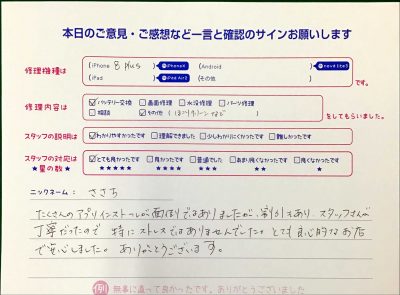 本日のご意見・ご感想など一言と確認のサインお願いします
修理機種は
(iPhone 8 plus ) ●iPhoneX (Android ) ●nova lite3
(iPad ) ●iPad Air2 (その他 ) です。
修理内容は
☑バッテリー交換 □画面修理 □水没修理 □パーツ修理
□相談 ☑その他 ( ) をしてもらいました。
スタッフの説明は ☑わかりやすかったです □理解できました □少しわかりにくかったです □難しかったです
スタッフの対応は ☑とても良かったです □良かったです □普通でした □あまり良くなかったです □良くなかったです
★星の数★ ★★★★★ ★★★★ ★★★ ★★ ★
ニックネーム： ささち
たくさんのアプリインストールが面倒ではありましたが、割引もあり、スタッフさんが
丁寧だったので 特にストレスではありませんでした。とても良心的なお店
で安心しました。ありがとうございます。
例 無事に直って良かったです。ありがとうございました